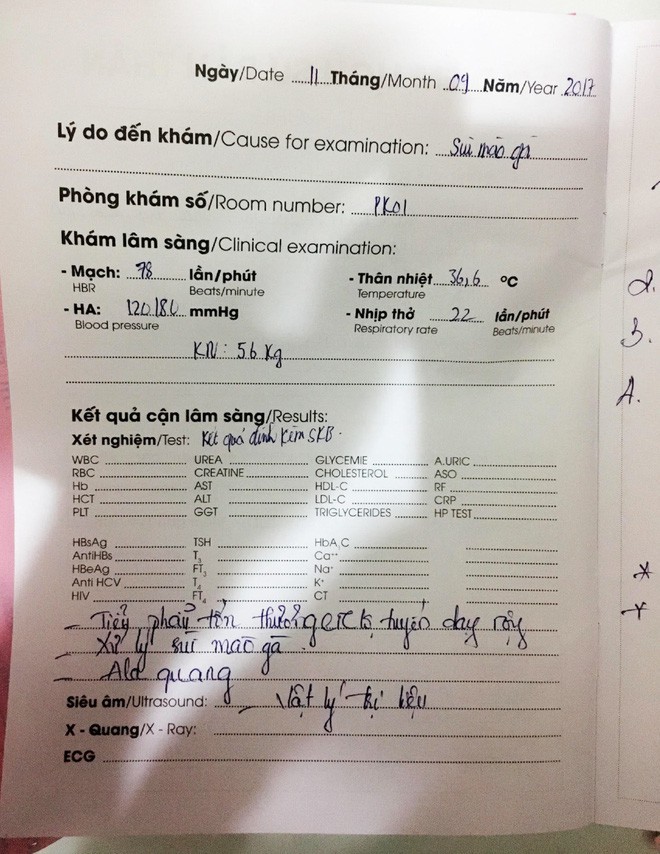 Ngày/Date 11 Tháng/Month 09 Năm/Year 2017
Lý do đến khám/Cause for examination: Sùi mào gà
Phòng khám số/Room number: PK01
Khám lâm sàng/Clinical examination:
- Mạch: 78 lần/phút - Thân nhiệt 36,6 °C
HBR Beats/minute Temperature
- HA: 120/80 mmHg - Nhịp thở 22 lần/phút
Blood pressure Respiratory rate Beats/minute
KN: 56 Kg
Kết quả cận lâm sàng/Results:
Xét nghiệm/Test: Kết quả đính kèm SKB.
WBC UREA GLYCEMIE A.URIC
RBC CREATINE CHOLESTEROL ASO
Hb AST HDL-C RF
HCT ALT LDL-C CRP
PLT GGT TRIGLYCERIDES HP TEST
HBsAg TSH HbA1C
AntiHBs T3 Ca++
HBeAg FT3 Na+
Anti HCV T4 K+
HIV FT4 CT
- Tiểu phẫu tổn thương tuyến
- Xử lý sùi mào gà.
- Ala quang
Siêu âm/Ultrasound: - Vật lý trị liệu
X - Quang/X - Ray:
ECG
d.
3.
A.
*